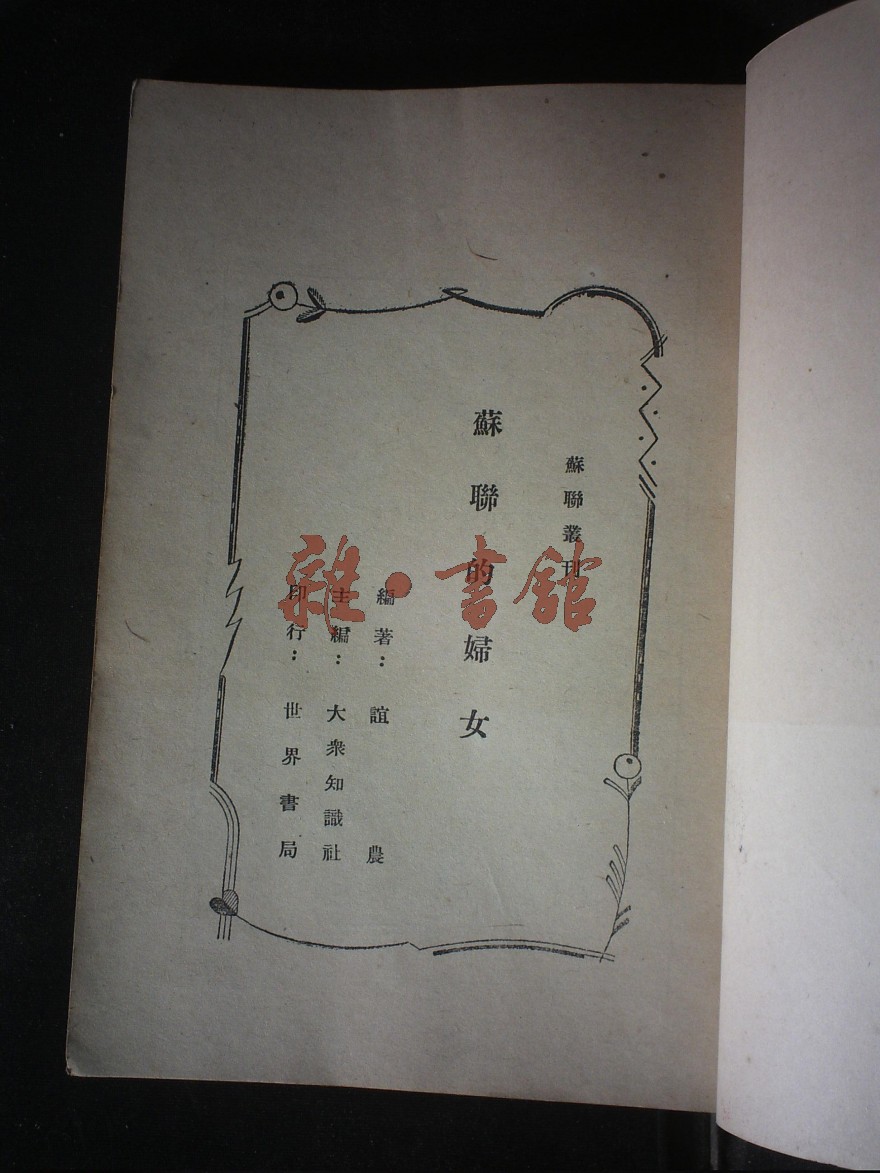 蘇聯叢刊
蘇聯的婦女
編著：誼農
主編：大衆知識社
印行：世界書局
雜·書館